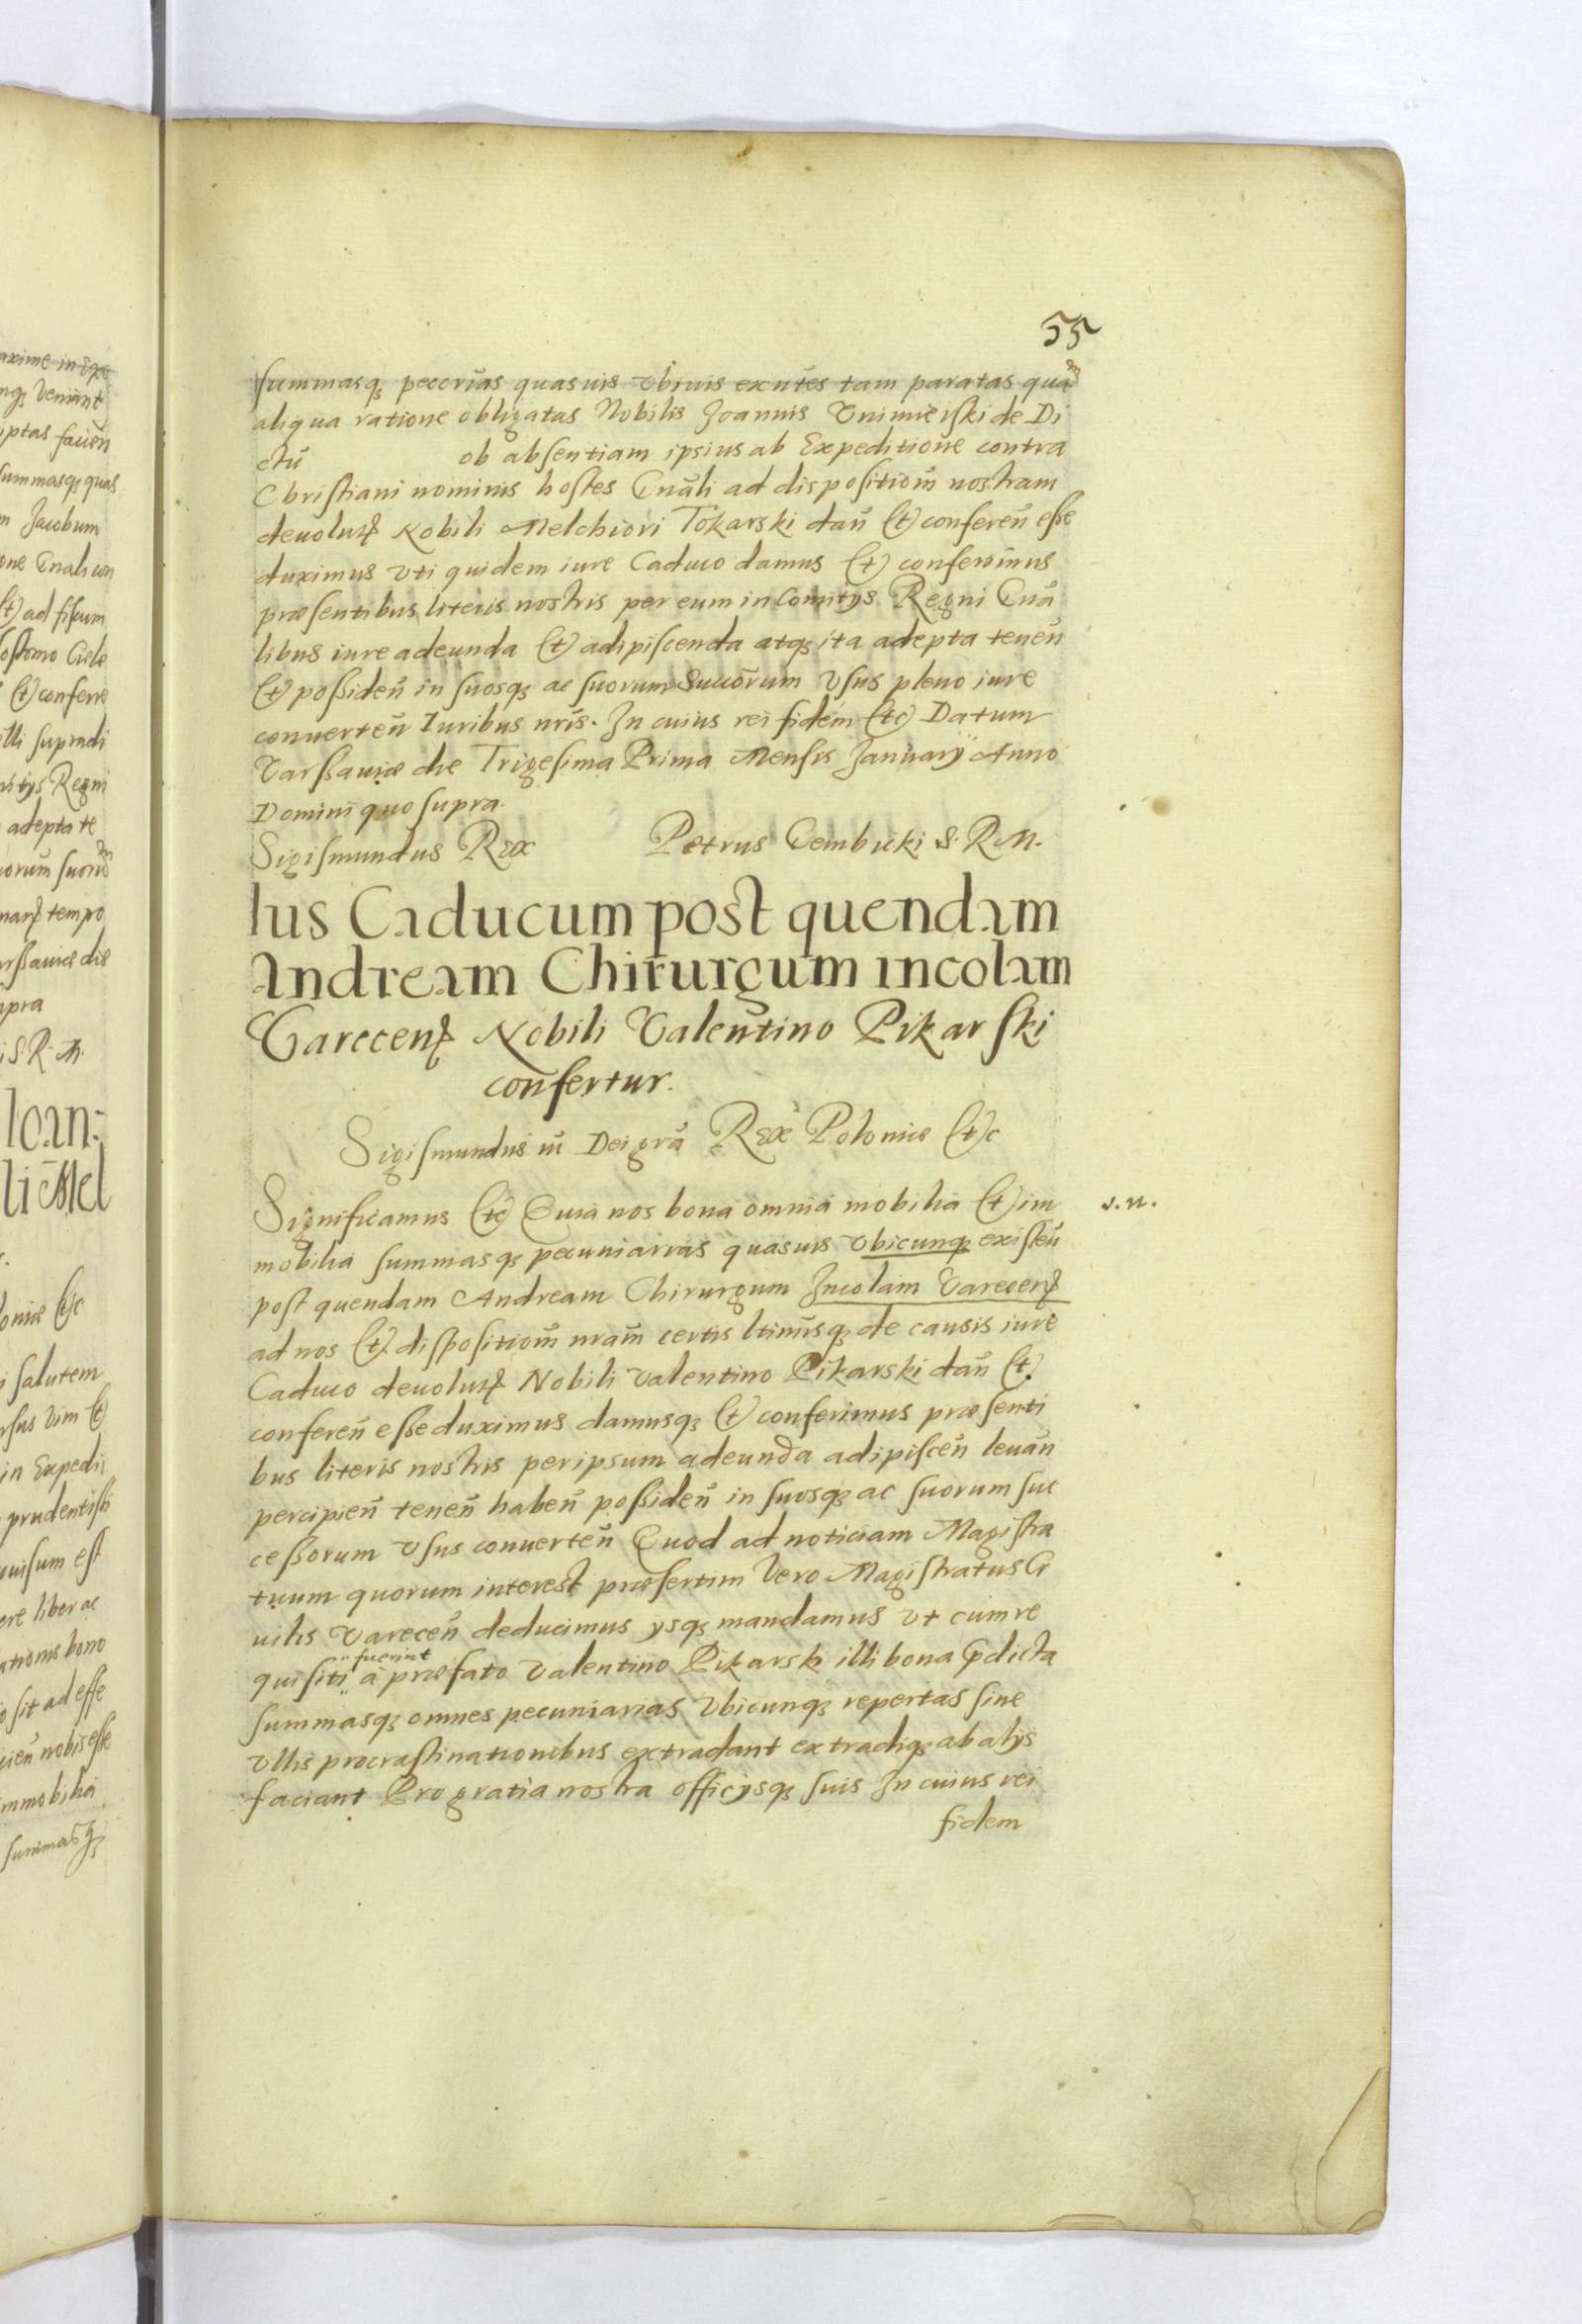 55
summasq₃ peccrias quasuis vbiuis exntes tam paratas quam
aliqua ratione obligatas Nobilis Joannis Vnimierski de Di
ctu ob absentiam ipsius ab Expeditione contra
Christiani nominis hostes Gnali ad dispositiom nostram
deuolut Nobili Melchiori Tokarski dan et conferen esse
duximus vti quidem iure Caduco damus et conferimus
præsentibus literis nostris per eum in Comitys Regni Gna
libus iure adeunda et adipiscenda atq₃ ita adepta tenen
et possiden in suosq₃ ac suorum Succorum vsus pleno iure
conuerten Iuribus nris. In cuius rei fidem etc Datum
Varssauiæ die Trigesima Prima Mensis January Anno
Domini quo supra.
Sigismundus Rex Petrus Gembicki S. R. M.
Ius Caducum post quendam
Andream Chirurgum incolam
Varecen Nobili Valentino Pikarski
confertur.
Sigismundus III Dei gra Rex Poloniæ etc
Significamus etc Quia nos bona omnia mobilia et im
v. n.
mobilia summasq₃ pecuniarias quasuis vbicunq₃ existen
post quendam Andream Chirurgum Incolam Varecen
ad nos et dispositiom nram certis ltimisq₃ de causis iure
Caduco deuolut Nobili Valentino Pikarski dan et
conferen esse duximus damusq₃ et conferimus præsenti
bus literis nostris per ipsum adeunda adipiscen leuan
percipien tenen haben possiden in suosq₃ ac suorum suc
cessorum vsus conuerten Quod ad noticiam Magistra
tuum quorum interest præsertim vero Magistratus Ci
uilis Varecen deducimus ysq₃ mandamus vt cum re
fuerint
quisiti a præfato Valentino Pikarski illi bona pdicta
summasq₃ omnes pecuniarias vbicunq₃ repertas sine
vllis procrastinationibus extradant extradiq₃ ab alys
faciant Pro gratia nostra officysq₃ suis In cuius rei
fidem